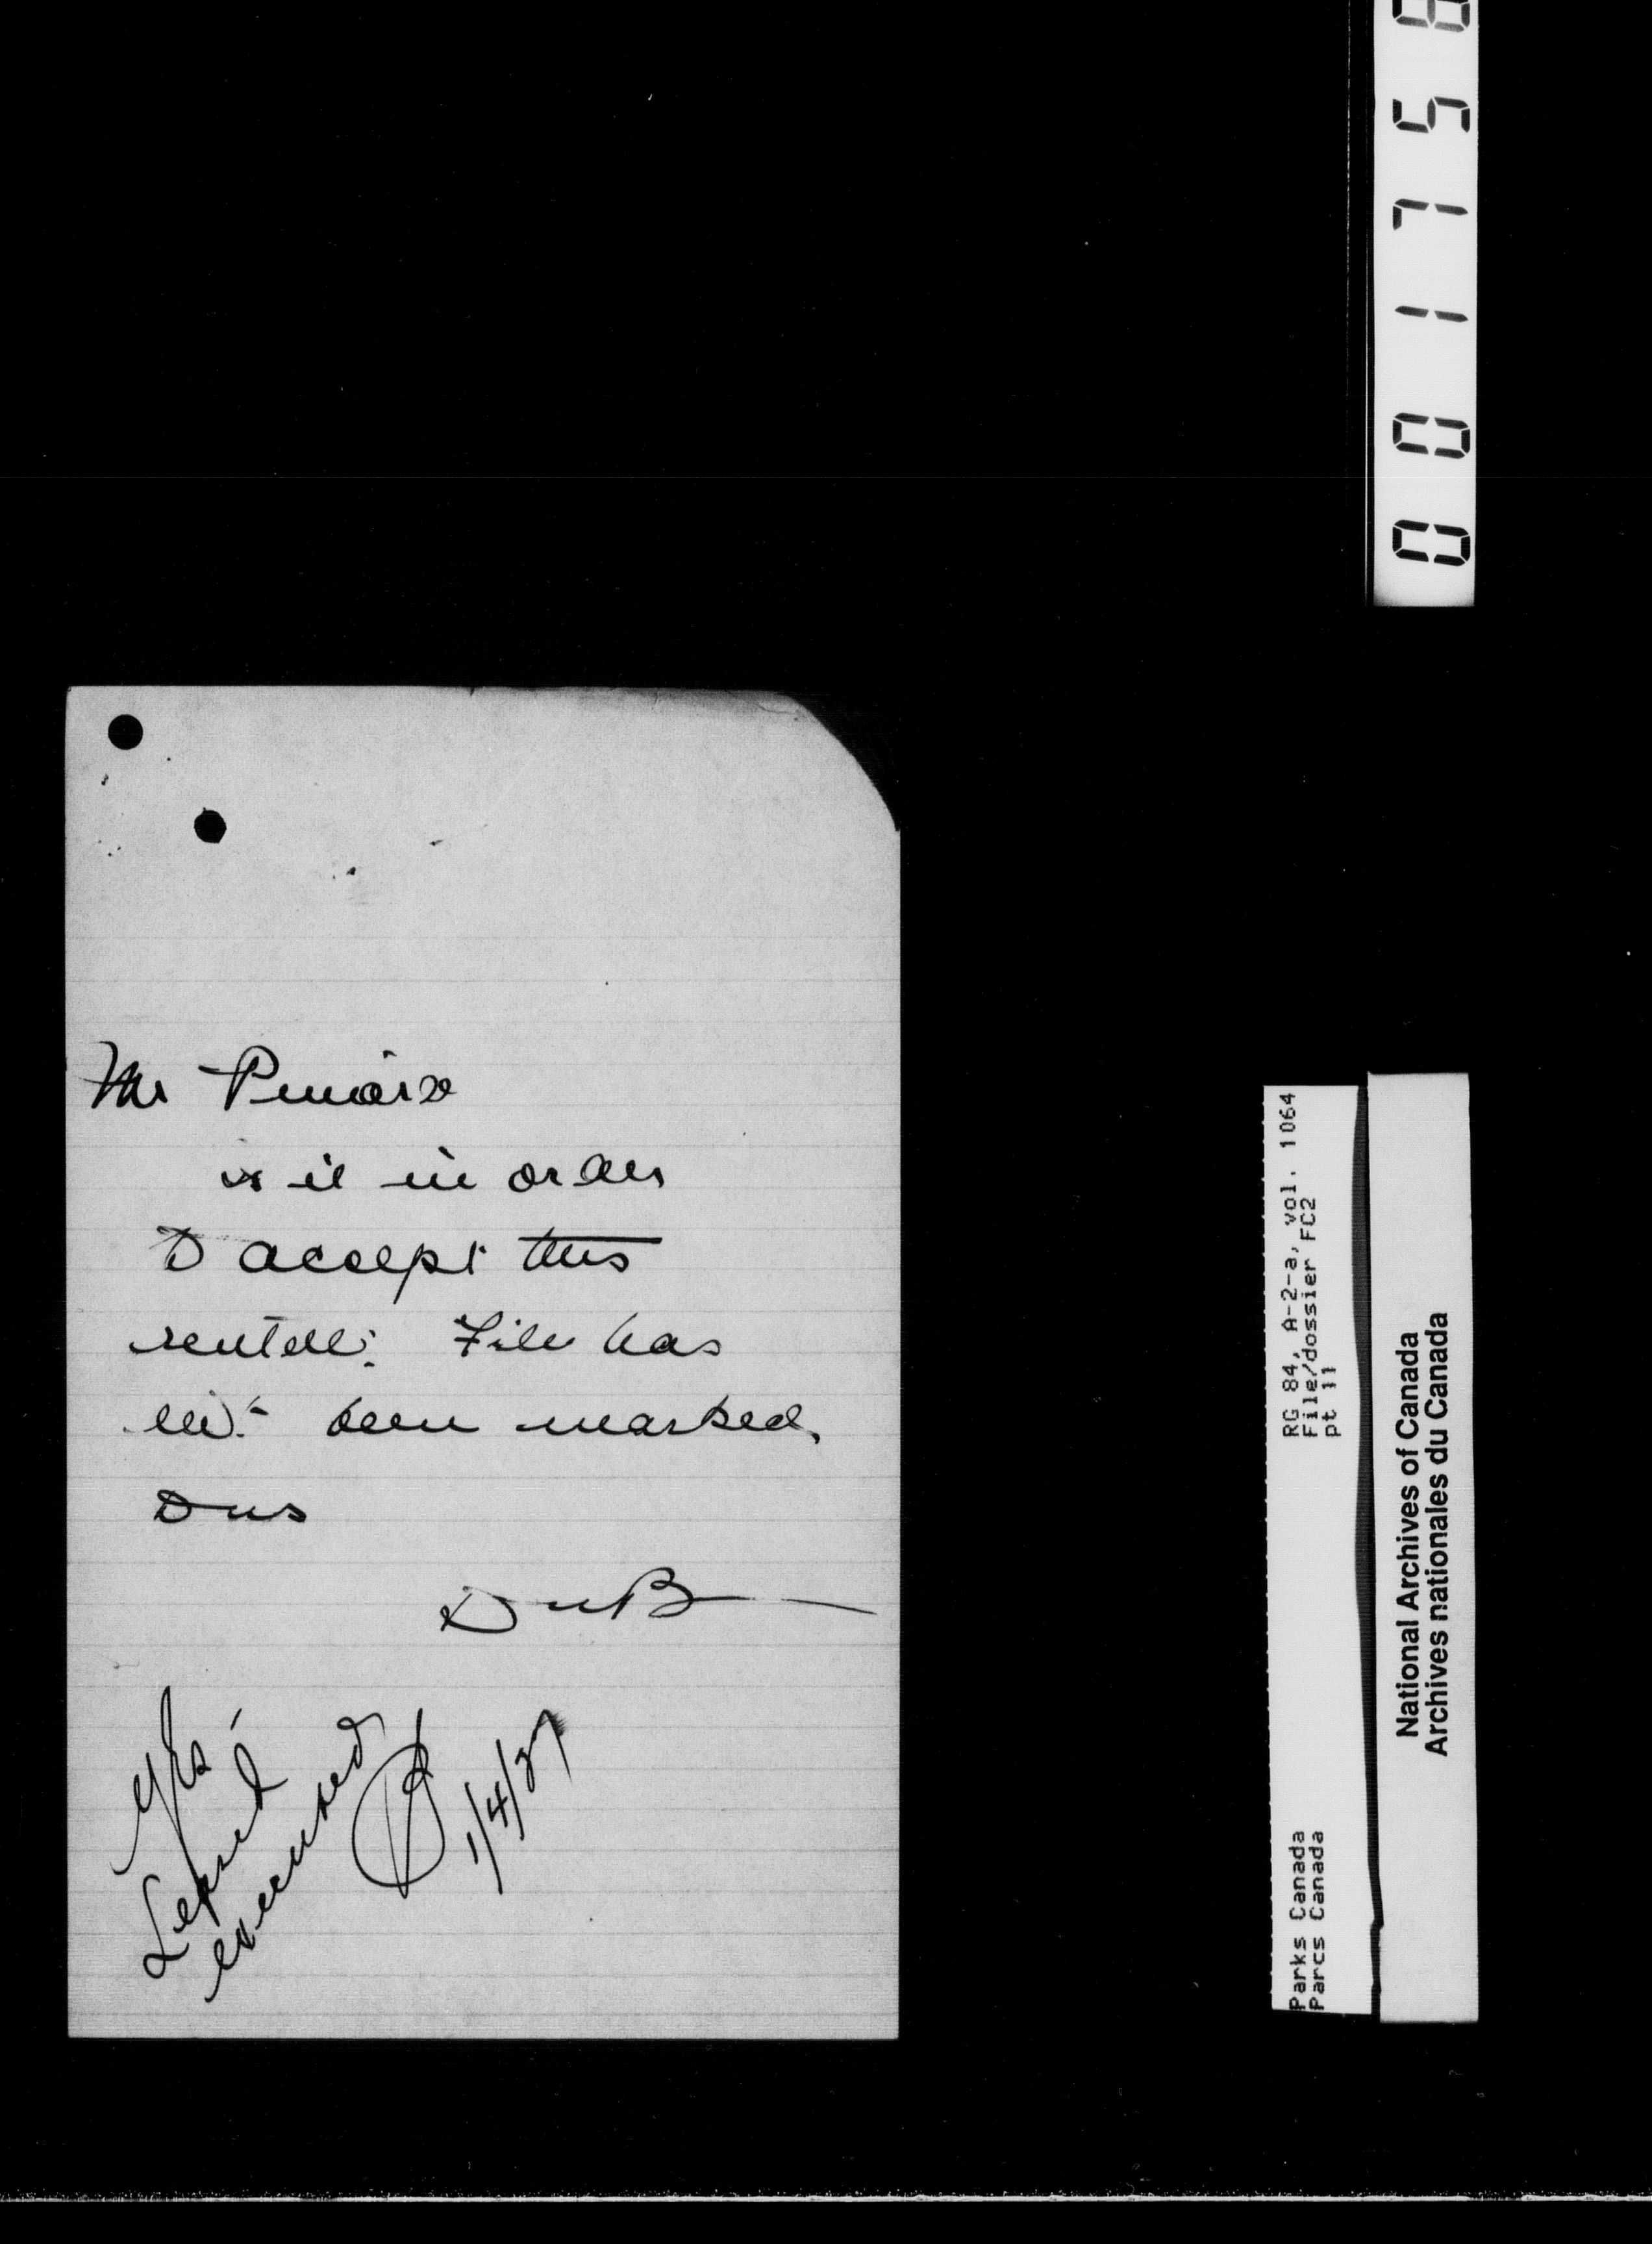 Mr
is it in order
to accept this
rental. File has
not been marked,
DuB
Yes -
executed
1/4/27
001758
RG 84, A-2-a, vol. 1064
File/dossier FC2
pt 11
Parks Canada
Parcs Canada
National Archives of Canada
Archives nationales du Canada